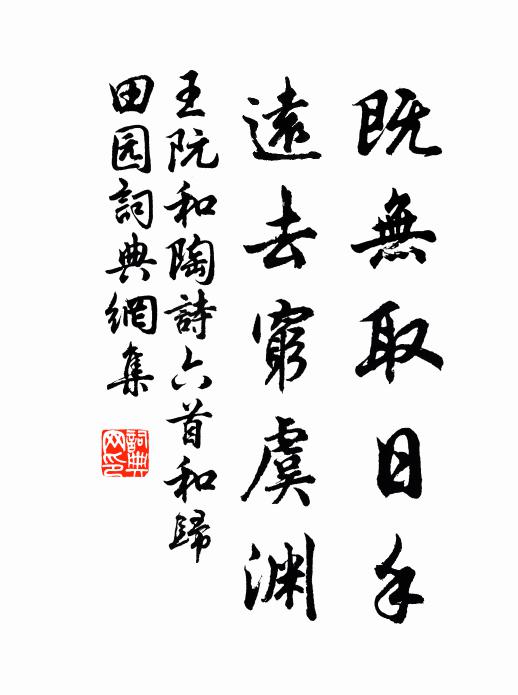 既無取日手
遠去窮虞渊
王阮和陶詩六首和歸
田园詞典網集
詞典网印